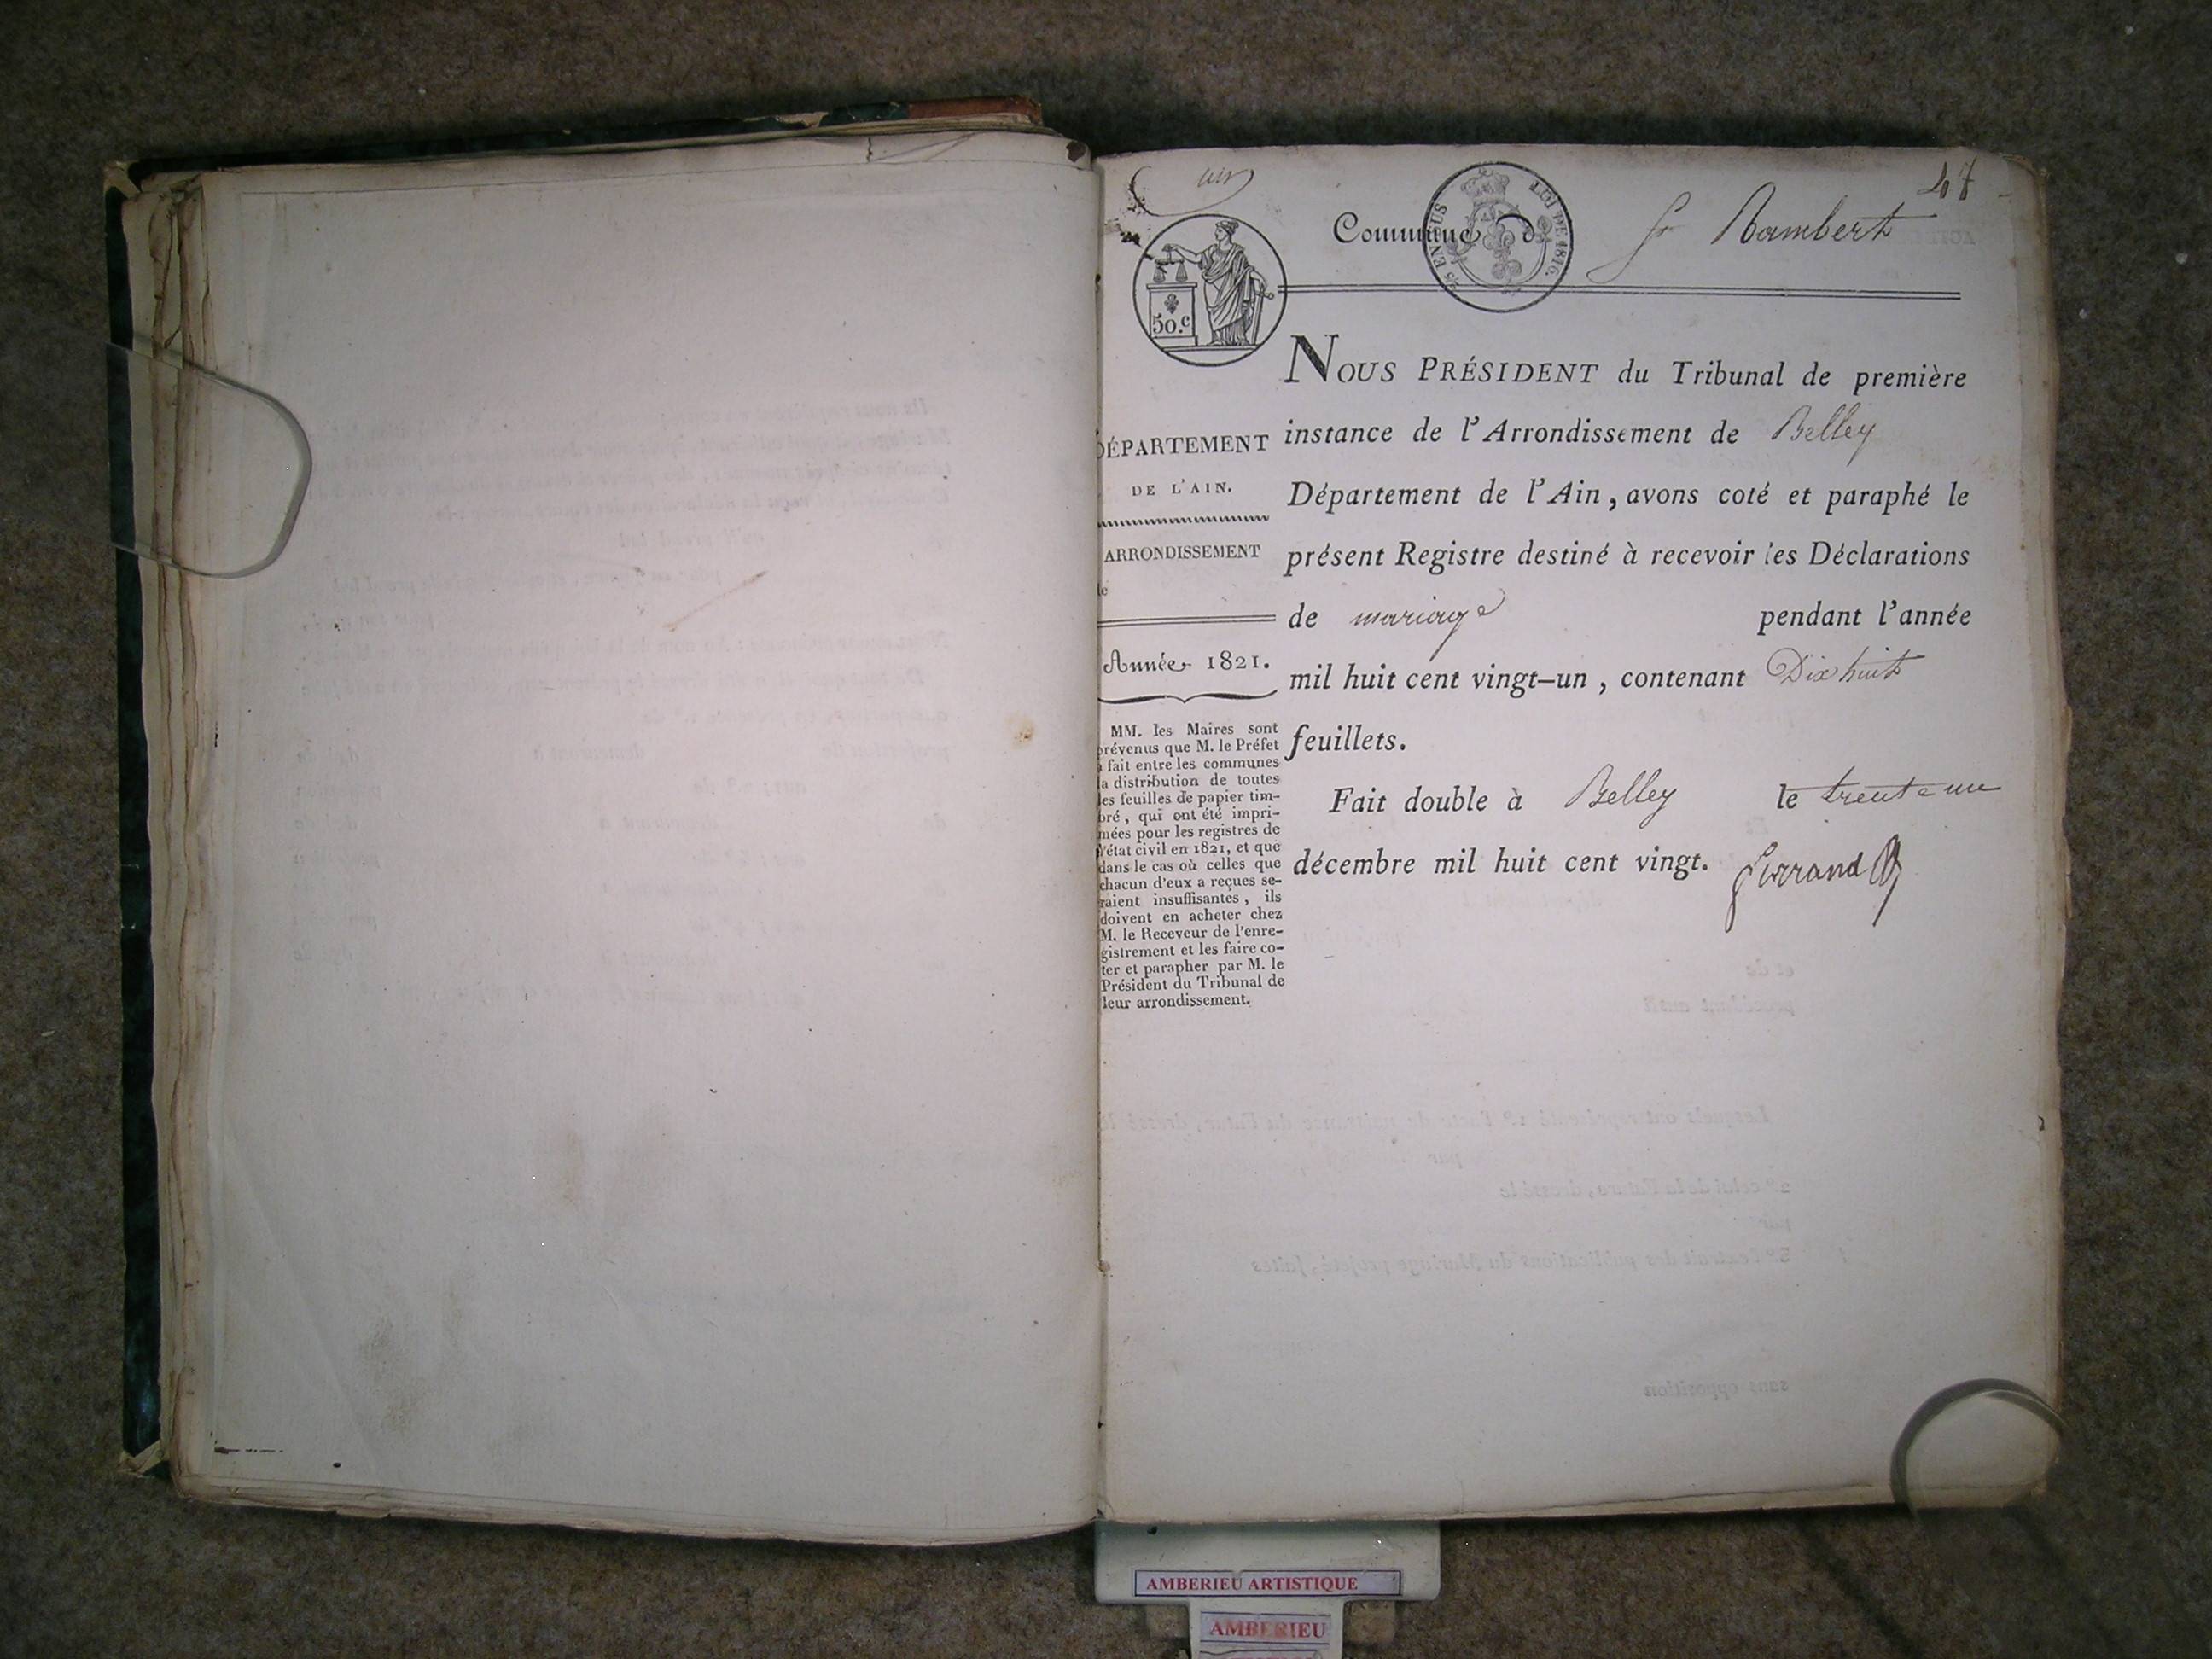 47
Commune d St Rambert
5/5 EN SUS
LOI DE 1816.
50.c
NOUS PRÉSIDENT du Tribunal de première
instance de l'Arrondissement de Belley
Département de l'Ain, avons coté et paraphé le
présent Registre destiné à recevoir les Déclarations
de mariage pendant l'année
mil huit cent vingt-un, contenant Dix huit
feuillets.
Fait double à Belley le trente un
décembre mil huit cent vingt.
DÉPARTEMENT
DE L'AIN.
ARRONDISSEMENT
de
Année 1821.
MM. les Maires sont
prévenus que M. le Préfet
a fait entre les communes
la distribution de toutes
les feuilles de papier tim-
bré, qui ont été impri-
mées pour les registres de
l'état civil en 1821, et que
dans le cas où celles que
chacun d'eux a reçues se-
raient insuffisantes, ils
doivent en acheter chez
M. le Receveur de l'enre-
gistrement et les faire co-
ter et parapher par M. le
Président du Tribunal de
leur arrondissement.
AMBERIEU ARTISTIQUE
AMBERIEU